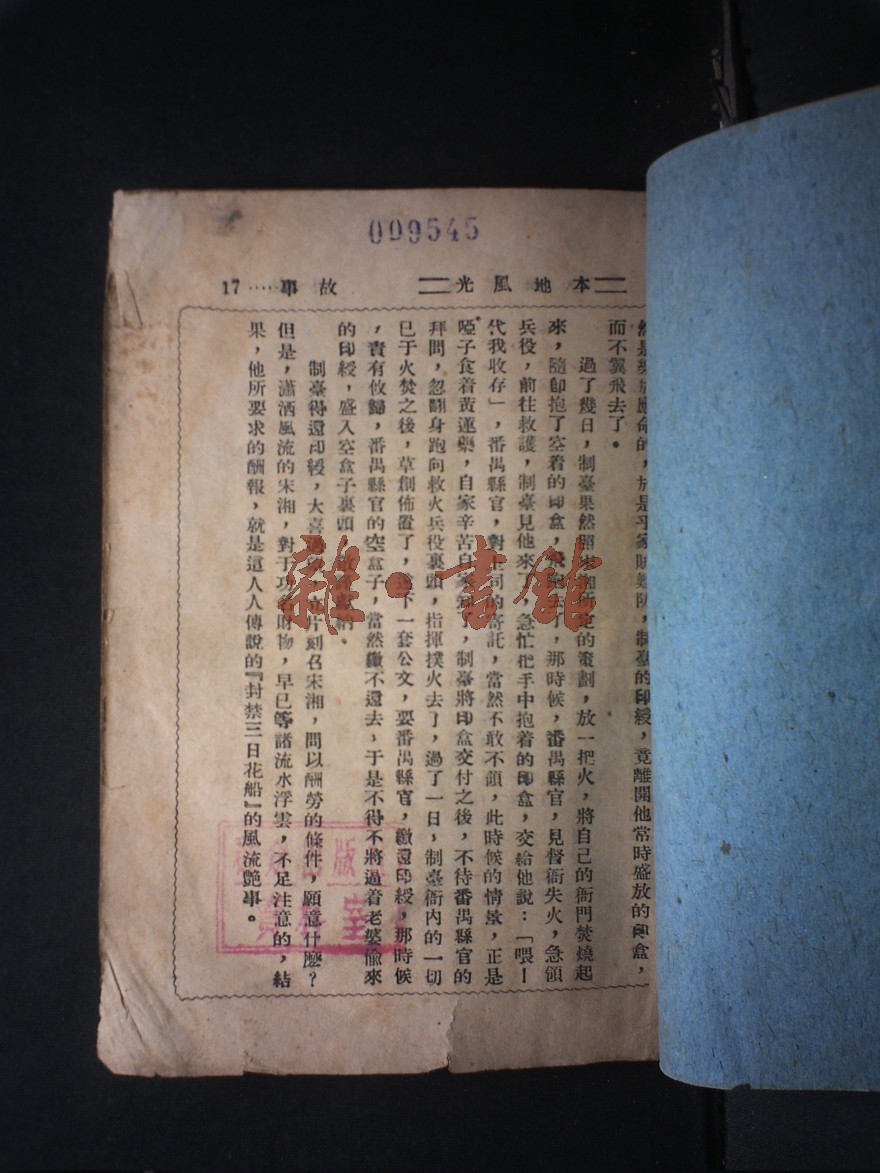 009545
本地風光
故事……17
應命的，於是乎家賊難防，制臺的印綬，竟離開他常時盛放的印盒，
而不翼飛去了。
過了幾日，制臺果然照宋湘所定的策劃，放一把火，將自己的衙門焚燒起
來，隨卽抱了空着的印盒，飛跑去了，那時候，番禺縣官，見督衙失火，急領
兵役，前往救護，制臺見他來了，急忙把手中抱着的印盒，交給他說：「喂！
代我收存」，番禺縣官，對上司的寄託，當然不敢不領，此時候的情景，正是
啞子食着黃連藥，自家辛苦自家知了，制臺將印盒交付之後，不待番禺縣官的
拜問，忽翻身跑向救火兵役裏頭，指揮撲火去了，過了一日，制臺衙內的一切
已于火焚之後，草創佈置了，下一套公文，要番禺縣官，繳還印綬，那時候
，責有攸歸，番禺縣官的空盒子，當然繳不還去、于是不得不將過着老婆偷來
的印綬，盛入空盒子裏頭，獻給、
制臺得還印綬，大喜過，片刻召宋湘，問以酬勞的條件，願意什麼？
但是，瀟洒風流的宋湘，對于功名財物，早已等諸流水浮雲，不足注意的，結
果，他所要求的酬報，就是這人人傳說的『封禁三日花船』的風流艷事。
雜·書館
版
室